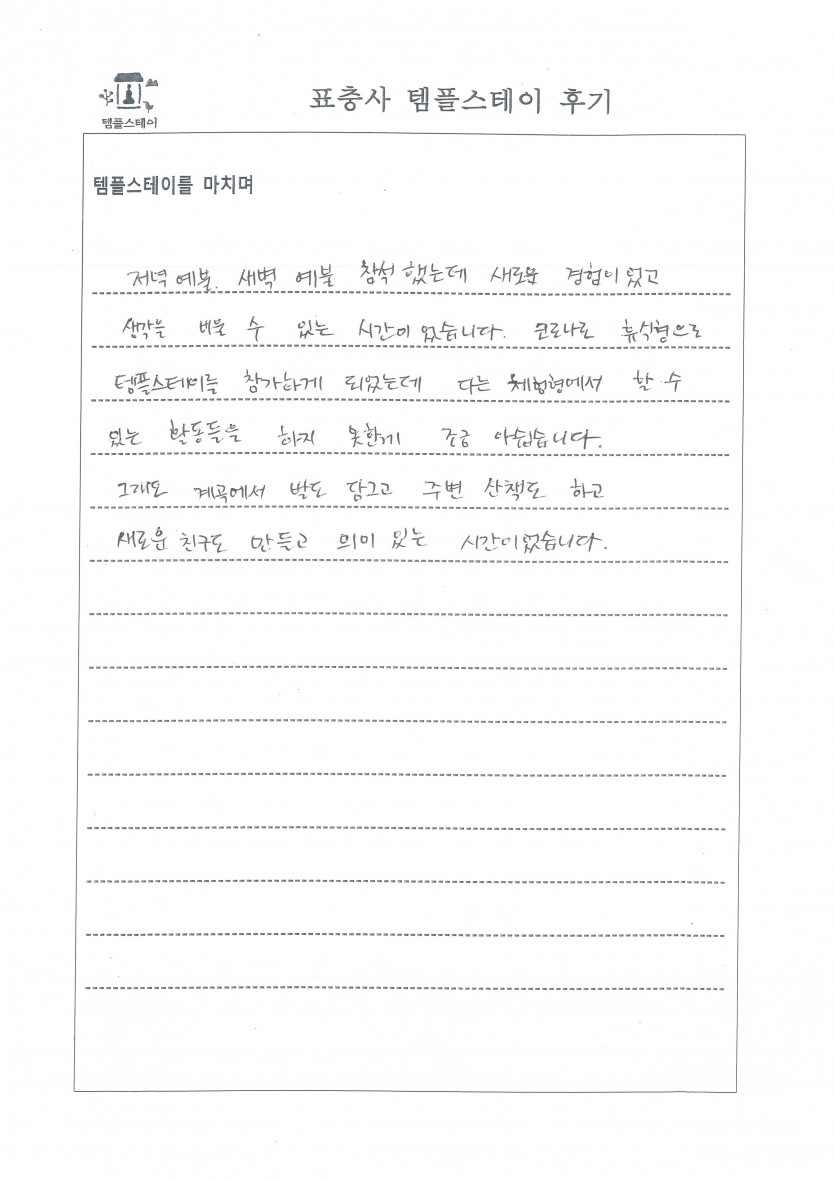 템플스테이
표충사 템플스테이 후기
템플스테이를 마치며
저녁예불, 새벽 예불 참석했는데 새로운 경험이었고
생각을 비울 수 있는 시간이었습니다. 코로나로 휴식형으로
템플스테이를 참가하게 되었는데 다른 체험형에서 할 수
있는 활동들을 하지 못한게 조금 아쉽습니다.
그래도 계곡에서 발도 담그고 주변 산책도 하고
새로운 친구도 만들고 의미 있는 시간이었습니다.